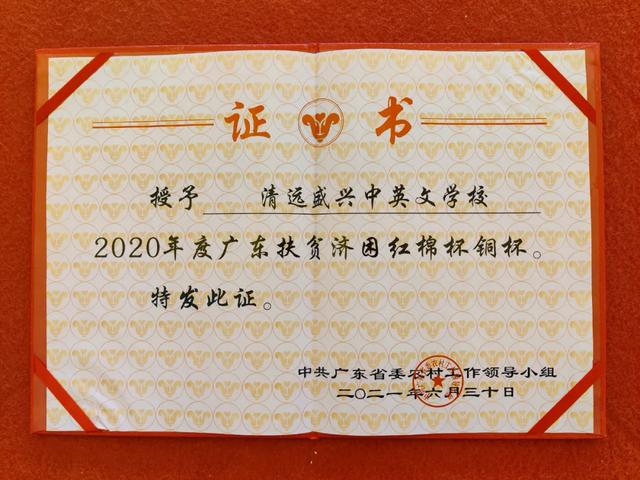 证书
授予 清远盛兴中英文学校
2020年度广东扶贫济困红棉杯铜杯。
特发此证。
中共广东省委农村工作领导小组
二〇二一年六月三十日